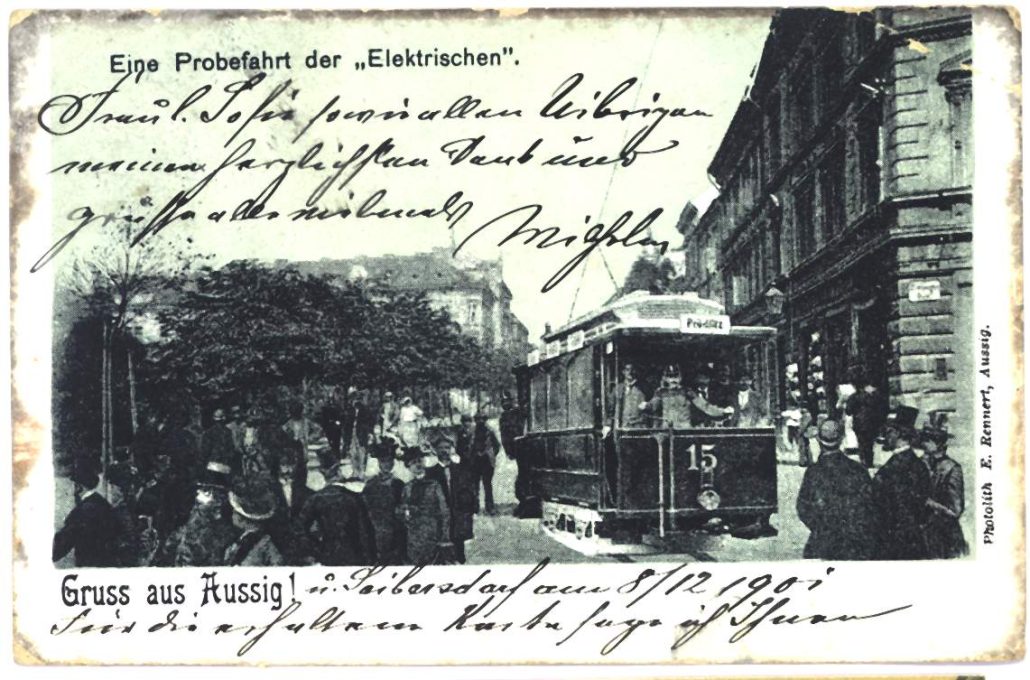 Eine Probefahrt der „Elektrischen".
Fräul. Sofie sowie allen Übrigen
meinen herzlichsten Dank und
grüsse alle vielmals
Wilhelm
15
Gruss aus Aussig! u. Seibersdorf am 8/12 1901
Für die erhaltene Karte sage ich Ihnen
Photolith E. Rennert, Aussig.